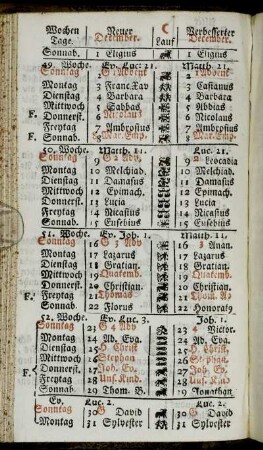 Wochen Neuer Verbesserter
Tage. December. Lauf December.
Sonnab. 1 Eligius 1 Eligius
49. Woche. Ev. Luc. 21. Matth. 21.
Sonntag 2 G 1 Advent 2 1 Advent
Montag 3 Franc. Xav 3 Cassianus
Dienstag 4 Barbara 4 Barbara
Mittwoch 5 Sabbas 5 Abdias
F. Donnerst. 6 Nicolaus 6 Nicolaus
Freytag 7 Ambrosius 7 Ambrosius
F. Sonnab. 8 Mar. Emp. 8
50. Woche. Matth. 11. Luc. 21.
Sonntag 9 G 2 Adv. 9 Leocadia
Montag 10 Melchiad. 10 Melchiad.
Dienstag 11 Damasus 11 Damasius
Mittwoch 12 Epimach. 12 Epimach.
Donnerst. 13 Lucia 13 Lucia
Freytag 14 Nicasius 14 Nicasius
Sonnab. 15 Eusebius 15 Eusebius
51. Woche. Ev. Joh. 1. Matth. 11.
Sonntag 16 G 3 Adv 16 3 Anan.
Montag 17 Lazarus 17 Lazarus
Dienstag 18 Gratian. 18 Gratian.
Mittwoch 19 Quatemb. 19 Quatemb.
Donnerst. 20 Christian. 20 Christian.
F. Freytag 21 Thomas 21 Thom. A.
Sonnab. 22 Florus 22 Honorat9
52. Woche. Ev. Luc. 3. Joh. 1.
Sonntag 23 G 4 Adv 23 4 Victor.
Montag 24 Ad. Eva. 24 Ad. Eva.
Dienstag 25 H. Christ 25 H. Christ.
Mittwoch 26 Stephan 26 Stephan.
F. Donnerst. 27 Joh. Ev. 27 Joh. Ev.
Freytag 28 Uns. Kind. 28 Uns. Kind.
Sonnab. 29 Thom. B. 29 Jonathan
Ev. Luc. 2. Luc. 2.
Sonntag 30 G David 30 G David
Montag 31 Sylvester 31 Sylvester